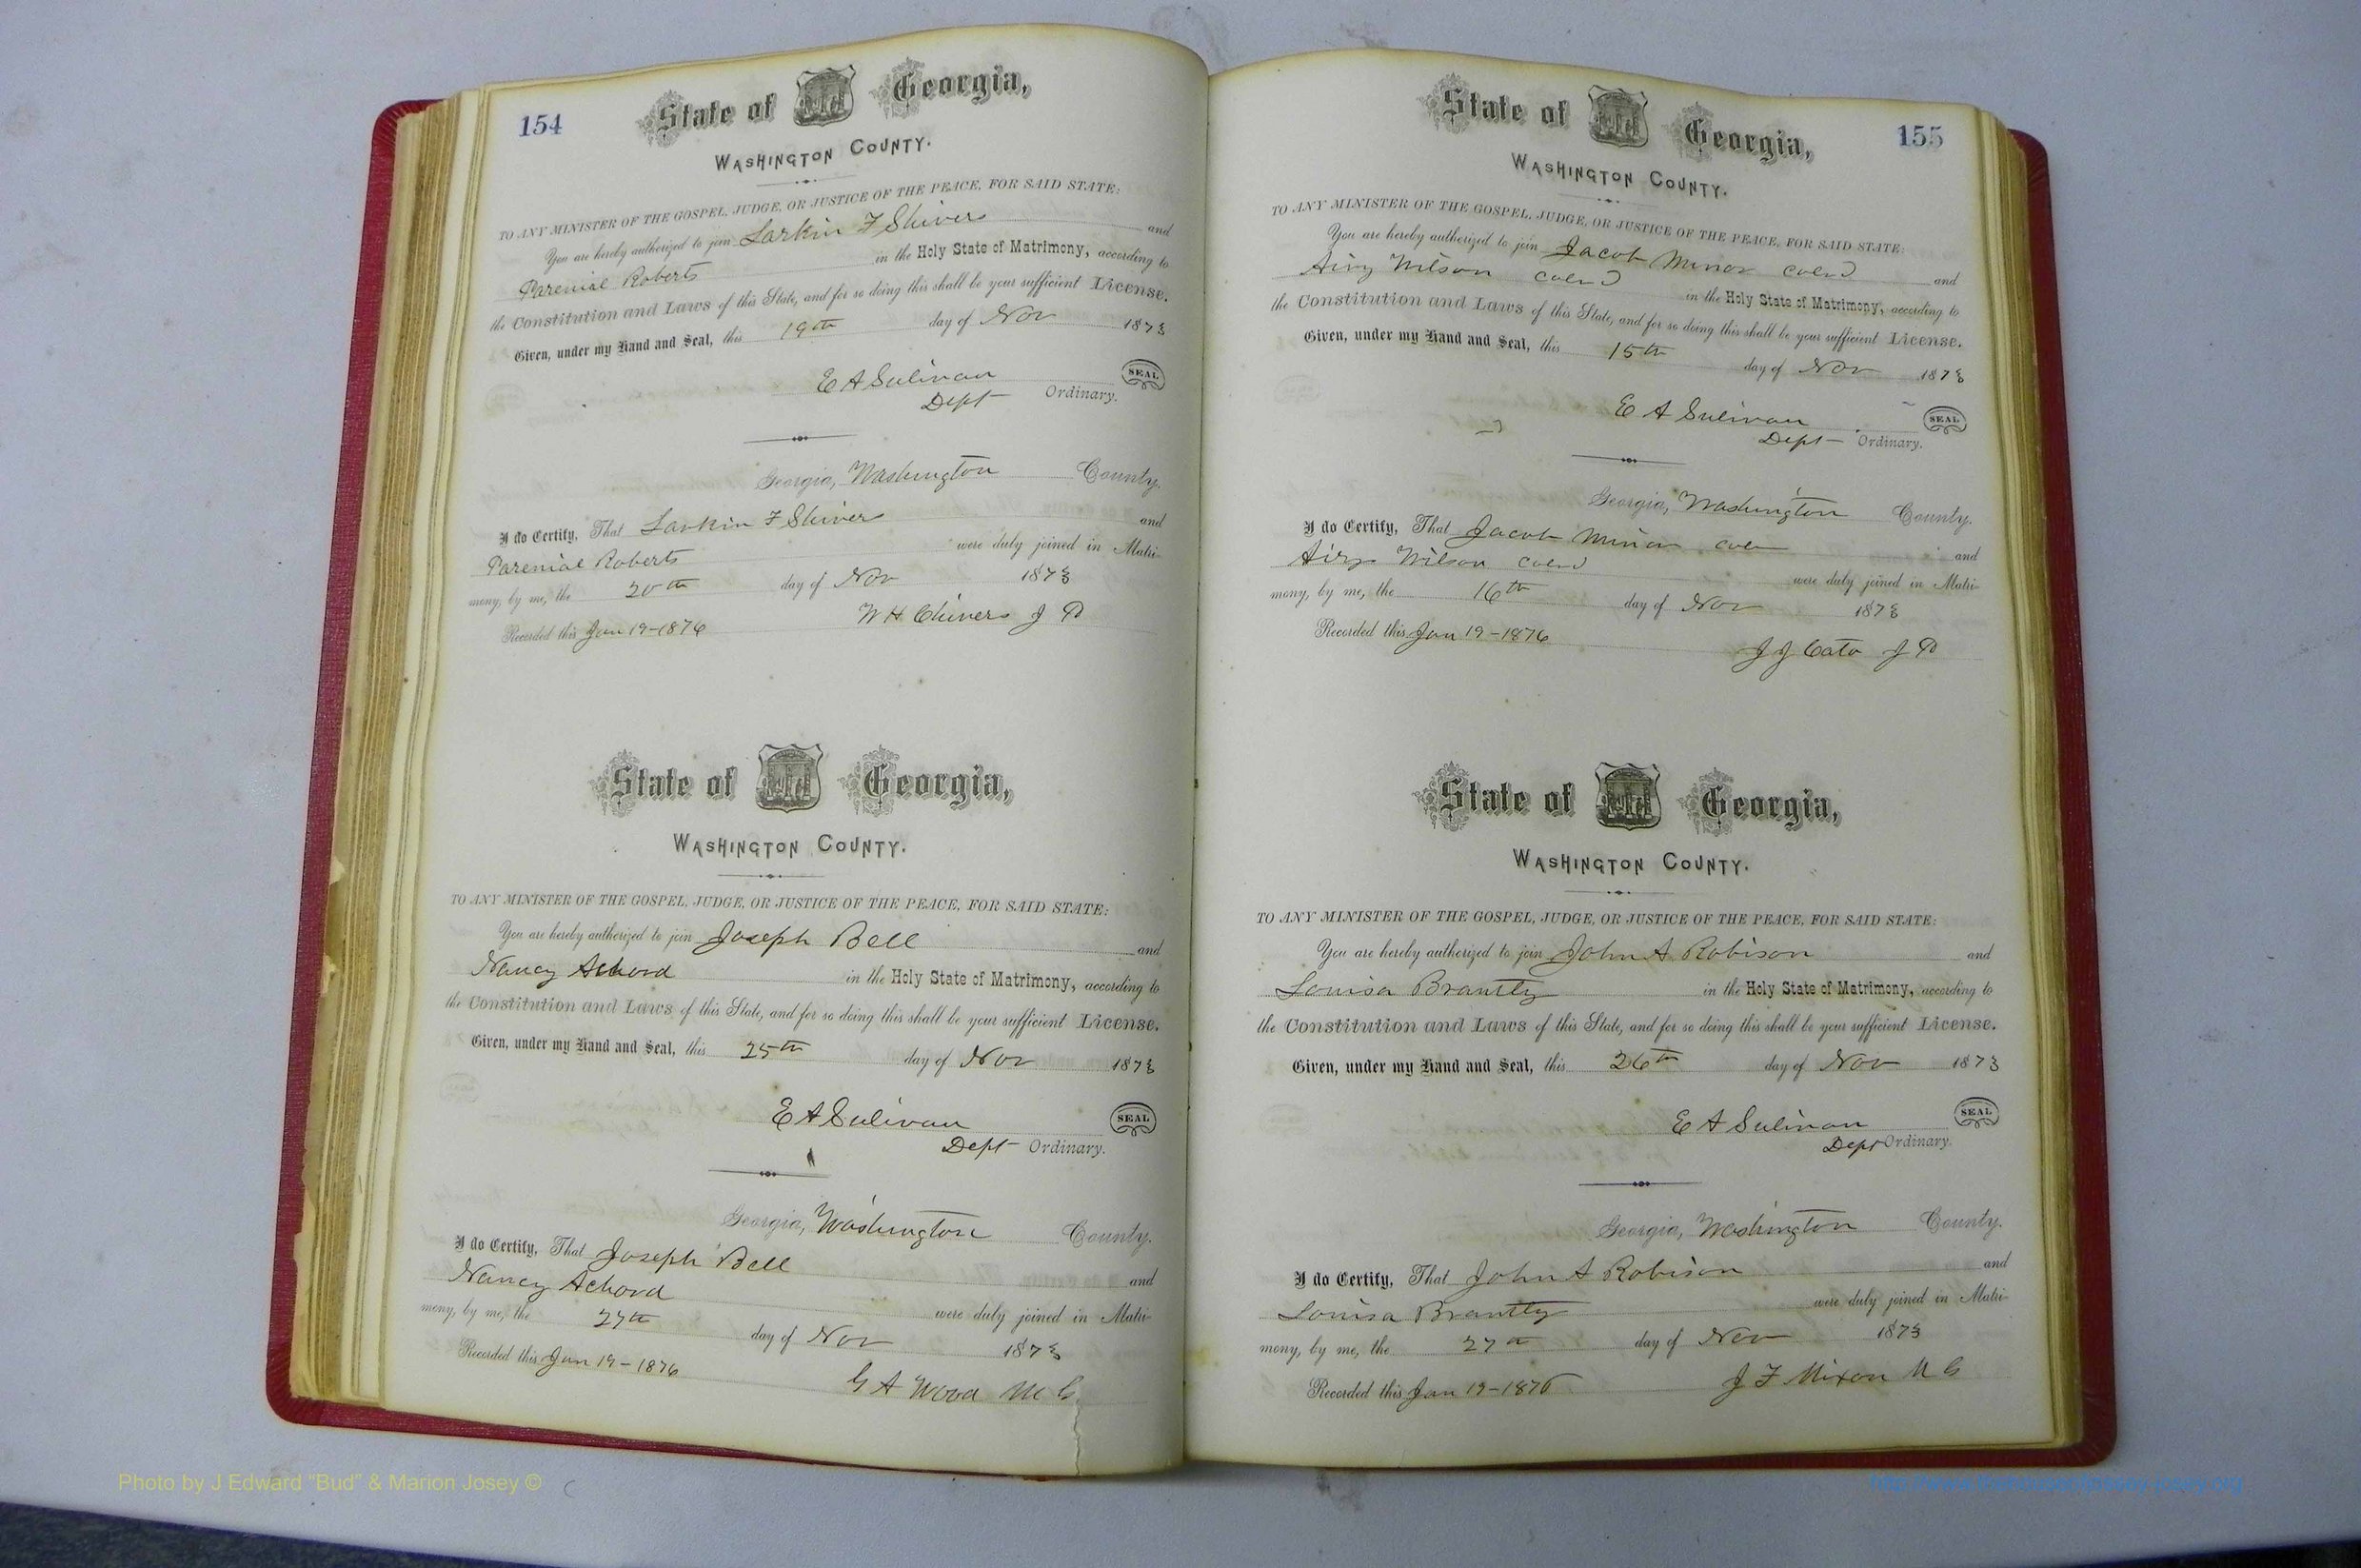 154
State of Georgia,
WASHINGTON COUNTY.
TO ANY MINISTER OF THE GOSPEL, JUDGE, OR JUSTICE OF THE PEACE, FOR SAID STATE:
You are hereby authorized to join Larkin F Shivers and
Parenial Roberts in the Holy State of Matrimony, according to
the Constitution and Laws of this State, and for so doing this shall be your sufficient License.
Given, under my Hand and Seal, this 19th day of Nov 1873
E A Sulivan SEAL
Dept Ordinary.
Georgia, Washington County.
I do Certify, That Larkin F Shivers and
Parenial Roberts were duly joined in Matri-
mony, by me, the 20th day of Nov 1873
Recorded this Jan 19-1876 W H Chivers J P
State of Georgia,
WASHINGTON COUNTY.
TO ANY MINISTER OF THE GOSPEL, JUDGE, OR JUSTICE OF THE PEACE, FOR SAID STATE:
You are hereby authorized to join Joseph Bell and
Nancy Achord in the Holy State of Matrimony, according to
the Constitution and Laws of this State, and for so doing this shall be your sufficient License.
Given, under my Hand and Seal, this 25th day of Nov 1873
E A Sulivan SEAL
Dept Ordinary.
Georgia, Washington County.
I do Certify, That Joseph Bell and
Nancy Achord were duly joined in Matri-
mony, by me, the 27th day of Nov 1873
Recorded this Jan 19-1876 G A Wood M G
155
State of Georgia,
WASHINGTON COUNTY.
TO ANY MINISTER OF THE GOSPEL, JUDGE, OR JUSTICE OF THE PEACE, FOR SAID STATE:
You are hereby authorized to join Jacob Minor cold and
Airy Wilson cold in the Holy State of Matrimony, according to
the Constitution and Laws of this State, and for so doing this shall be your sufficient License.
Given, under my Hand and Seal, this 15th day of Nov 1873
E A Sulivan SEAL
Dept Ordinary.
Georgia, Washington County.
I do Certify, That Jacob Minor col and
Airy Wilson cold were duly joined in Matri-
mony, by me, the 16th day of Nov 1873
Recorded this Jan 19-1876
J J Cato J P
State of Georgia,
WASHINGTON COUNTY.
TO ANY MINISTER OF THE GOSPEL, JUDGE, OR JUSTICE OF THE PEACE, FOR SAID STATE:
You are hereby authorized to join John A Robison and
Louisa Brantly in the Holy State of Matrimony, according to
the Constitution and Laws of this State, and for so doing this shall be your sufficient License.
Given, under my Hand and Seal, this 26th day of Nov 1873
E A Sulivan SEAL
Dept Ordinary.
Georgia, Washington County.
I do Certify, That John A Robison and
Louisa Brantly were duly joined in Matri-
mony, by me, the 27th day of Nov 1873
Recorded this Jan 19-1876 J F Mixon M G
Photo by J Edward "Bud" & Marion Josey ©